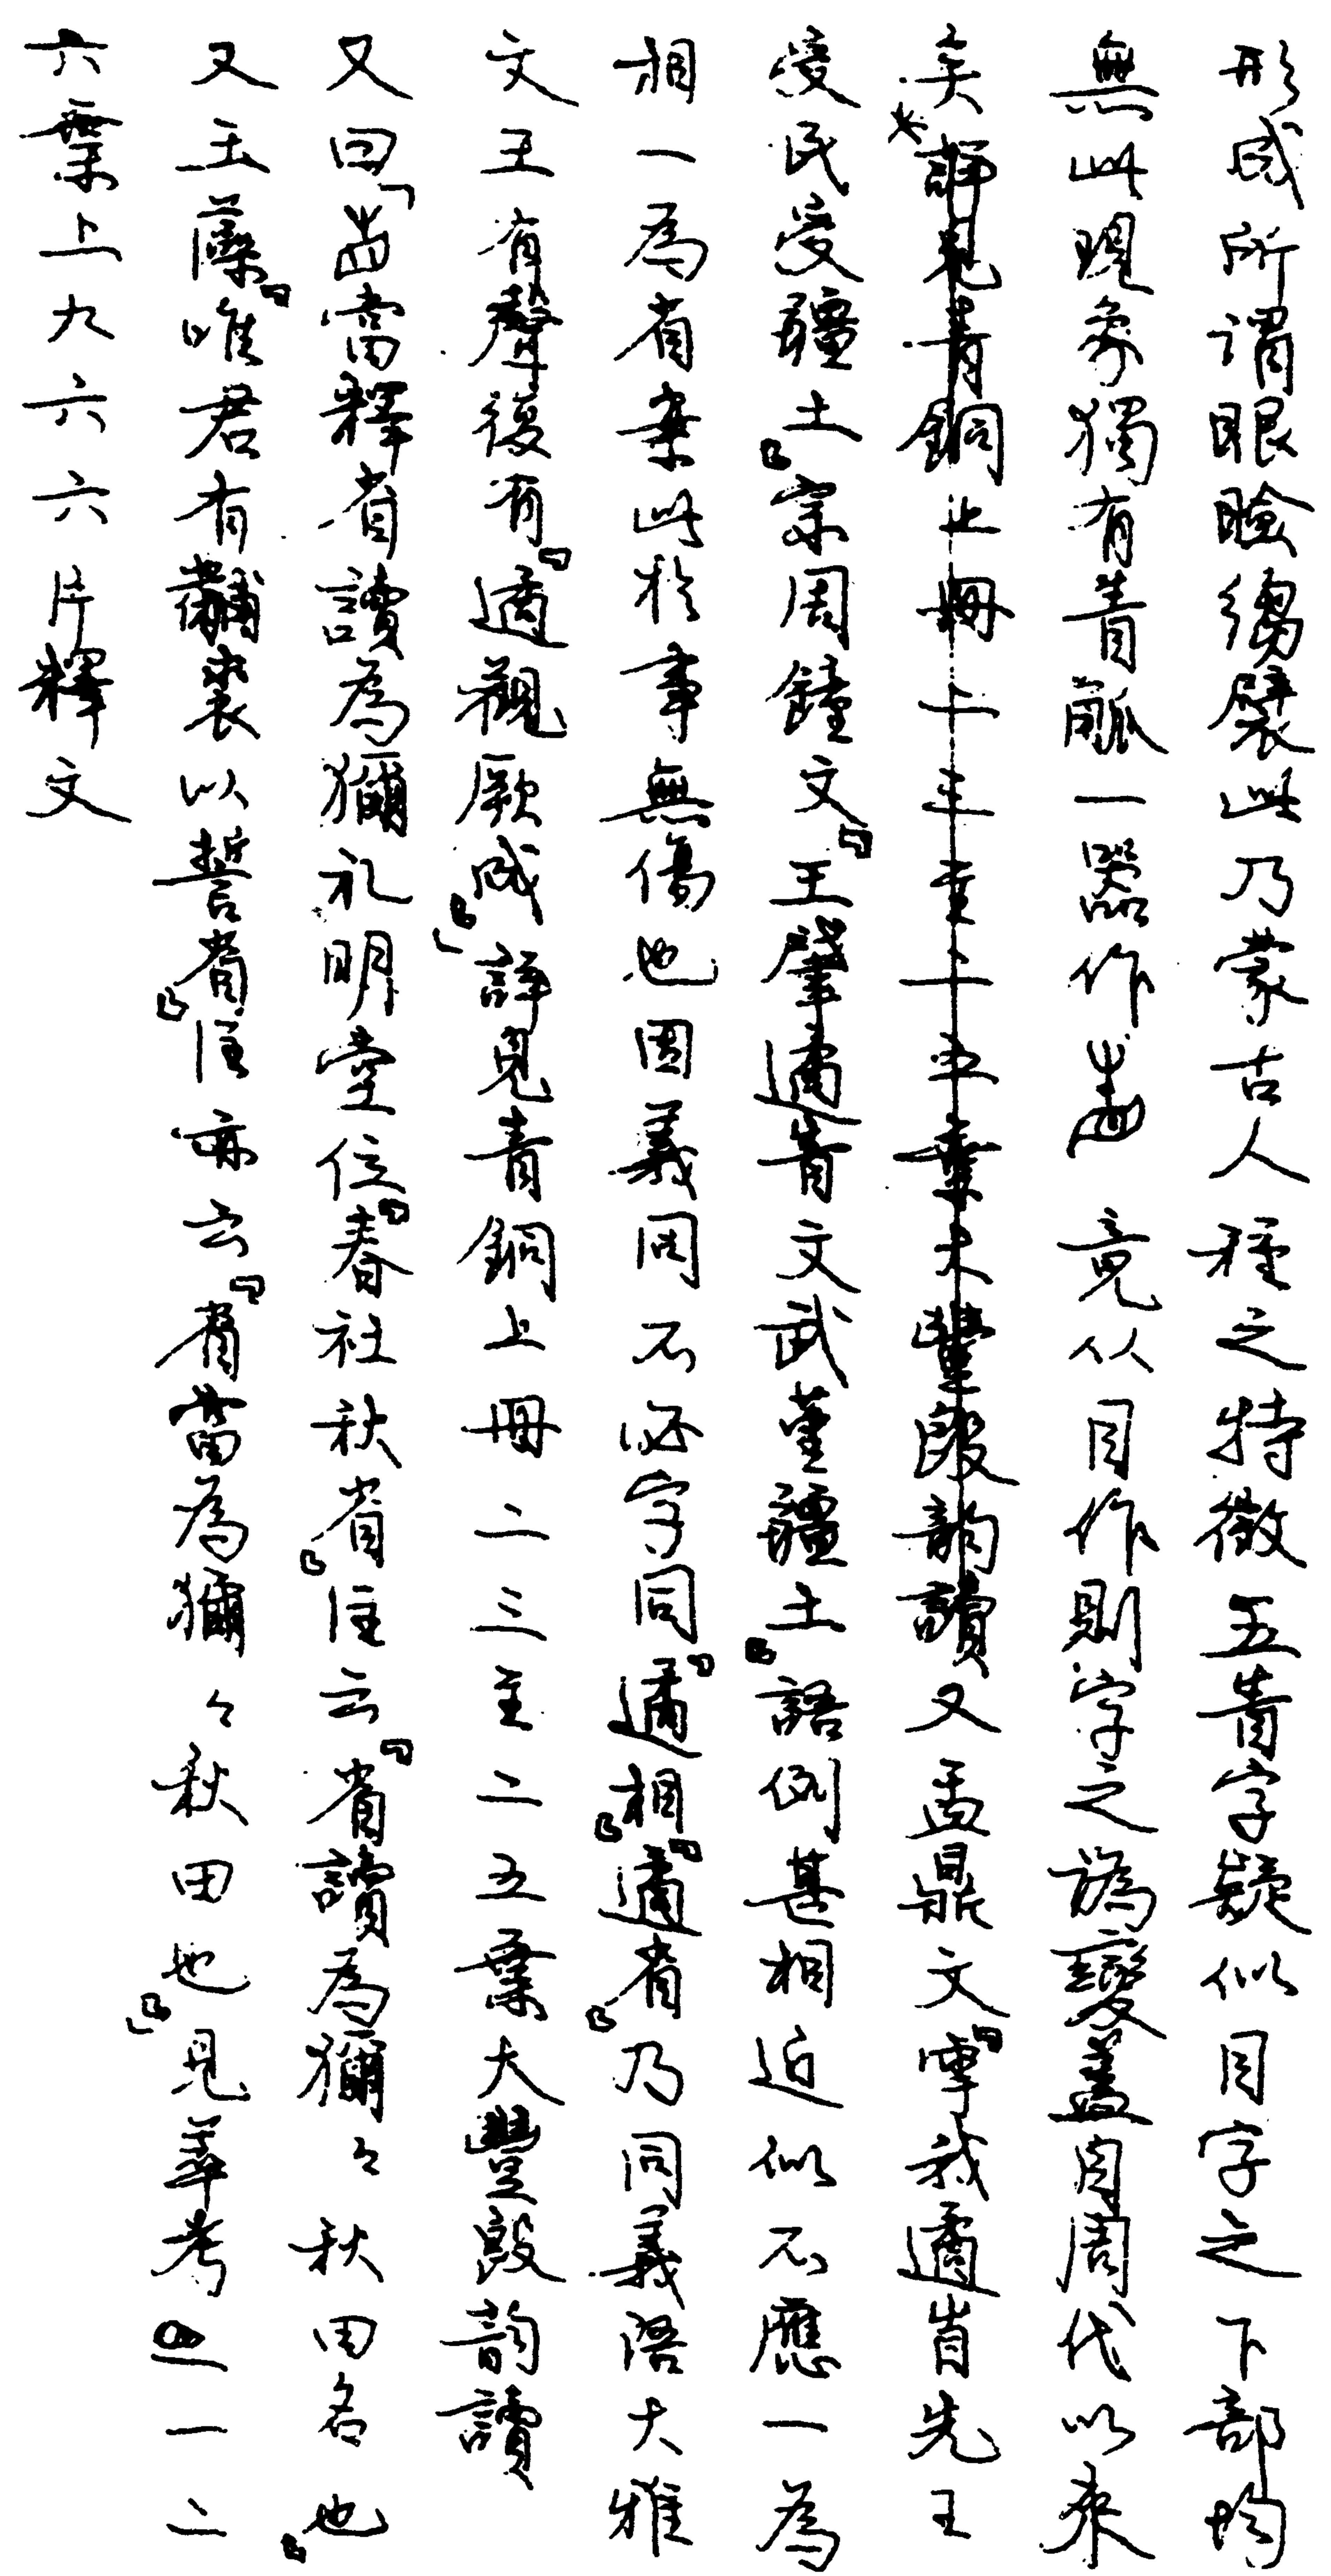 形成所謂眼瞼縐襞此乃蒙古人種之特徵五眚字疑似目字之下部均
無此現象獨有眚甗一器作竟从目作則字之譌變蓋自周代以來
矣詳見青銅上冊上韵讀又盂鼎文『𩁹我遹眚先王
受民受疆土』宗周鐘文『王肇遹眚文武堇疆土』語例甚相近似不應一為
相一為省案此於事無傷也固義同不必字同『遹相』『遹省』乃同義語大雅
文王有聲復有『遹觀厥成』」詳見青銅上冊二三至二五葉大豐𣪘韵讀
又曰「當釋省讀為獮礼明堂位『春社秋省』注云『省讀為獮々秋田名也』
又玉藻『唯君有黼裘以誓省』注亦云『省當為獮々秋田也』」見萃考一二
六葉上九六六片釋文